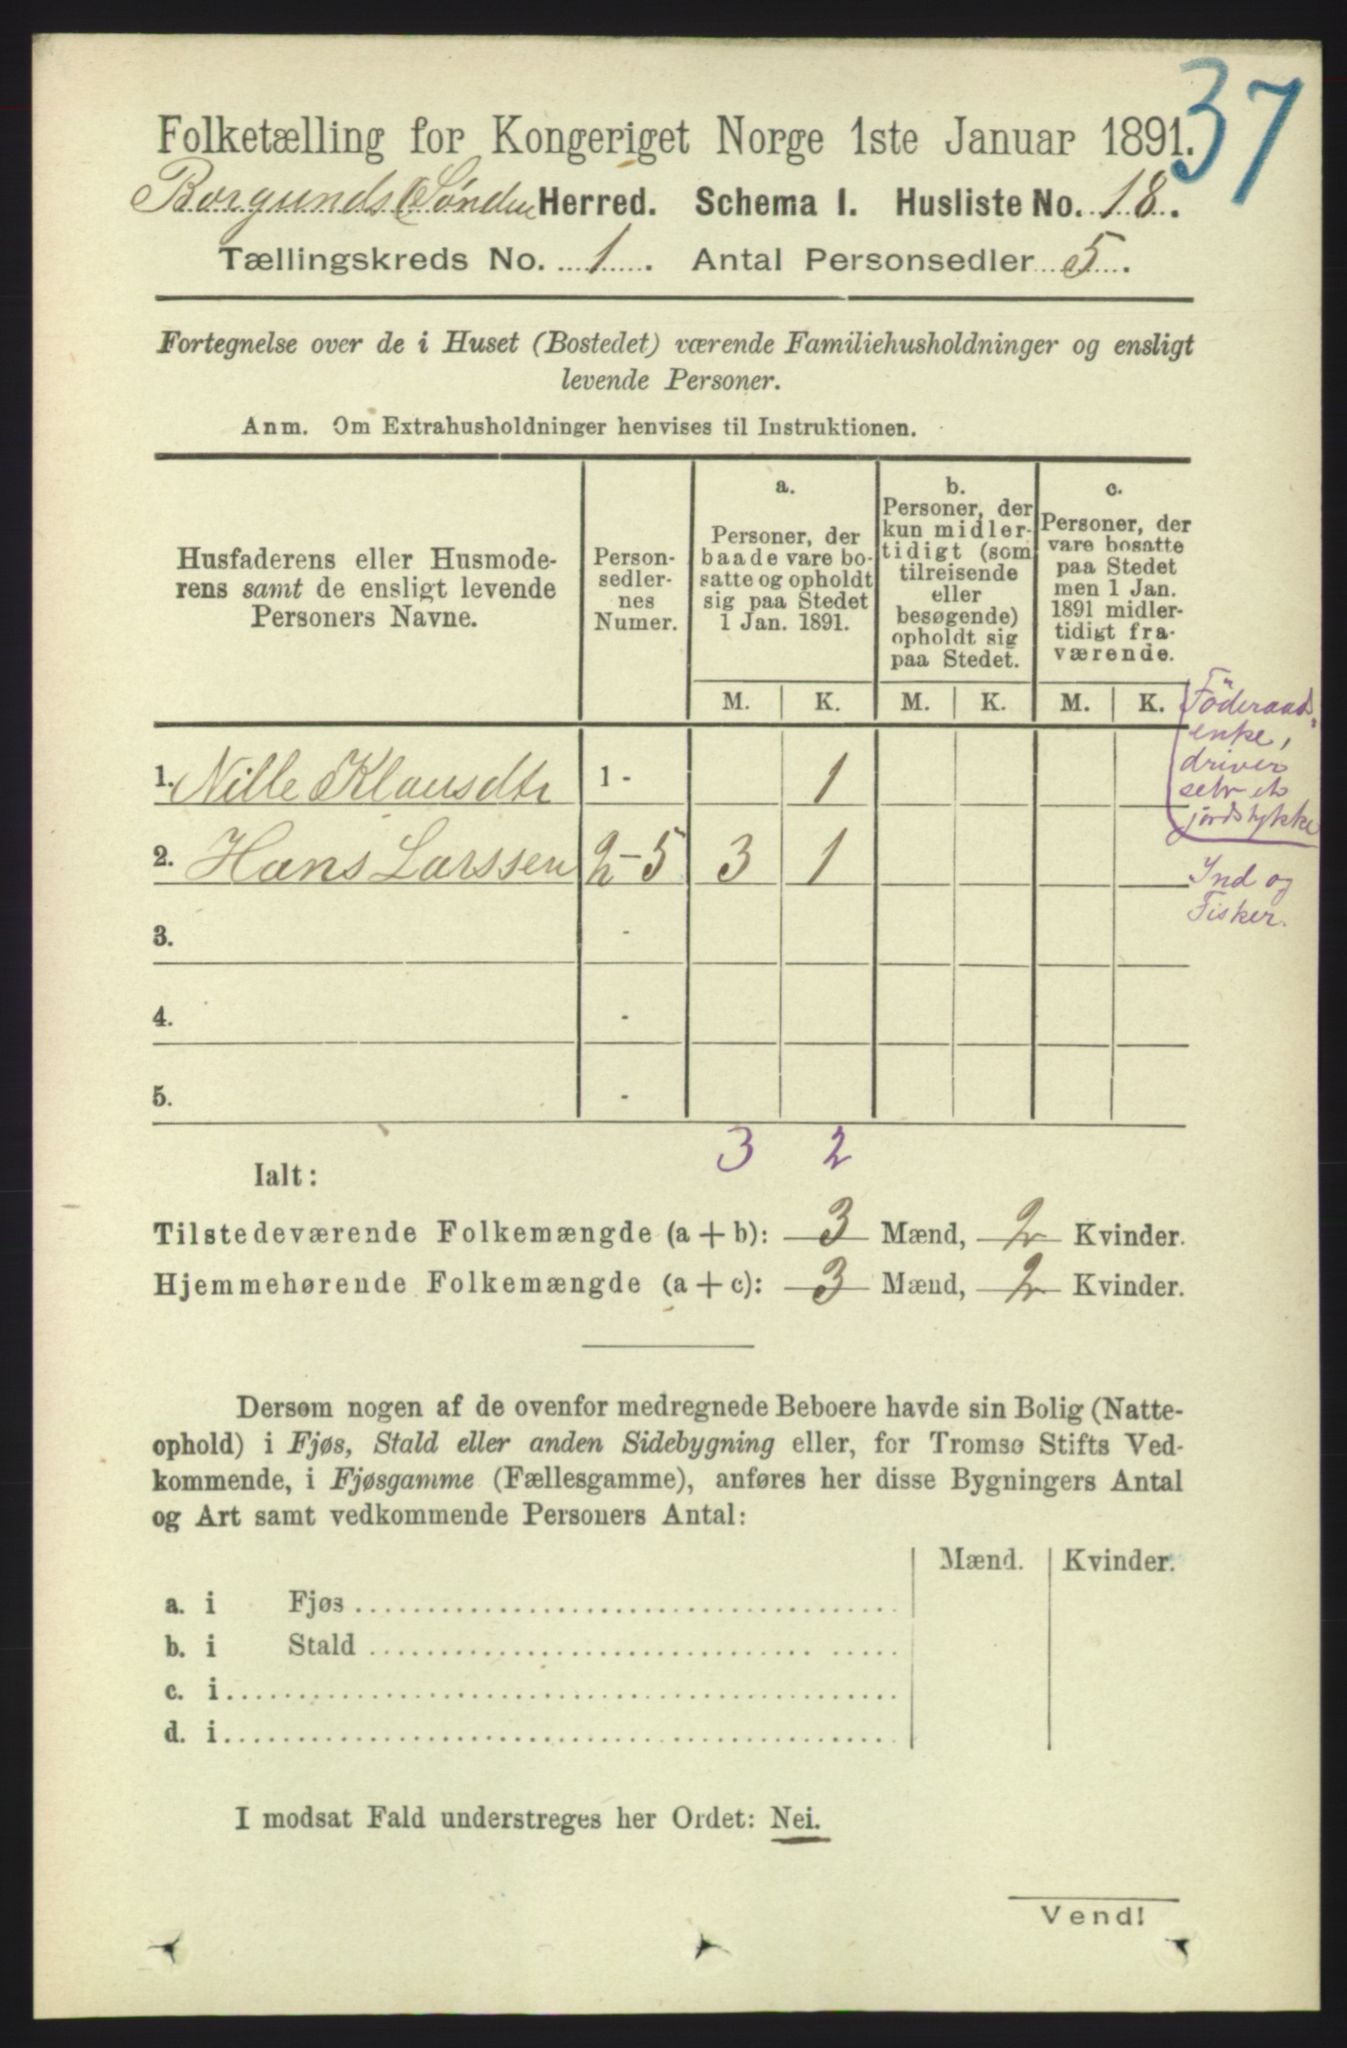 37
Folketælling for Kongeriget Norge 1ste Januar 1891.
Borgunds (Søndre Herred. Schema I. Husliste No. 18.
Tællingskreds No. 1. Antal Personsedler 5.
Fortegnelse over de i Huset (Bostedet) værende Familiehusholdninger og ensligt
levende Personer.
Anm. Om Extrahusholdninger henvises til Instruktionen.
Husfaderens eller Husmode-
rens samt de ensligt levende
Personers Navne.
Person-
sedler-
nes
Numer.
a.
Personer, der
baade vare bo-
satte og opholdt
sig paa Stedet
1 Jan. 1891.
b.
Personer, der
kun midler-
tidigt (som
tilreisende
eller
besøgende)
opholdt sig
paa Stedet.
c.
Personer, der
vare bosatte
paa Stedet
men 1 Jan.
1891 midler-
tidigt fra-
værende.
M. K. M. K. M. K.
1. Nille Klausdtr 1 - 1
Föderaads-
enke,
driver
selv et
jordstykke
2. Hans Larssen 2-5 3 1
Ind og
Fisker.
3. -
4. -
5. -
3 2
Ialt:
Tilstedeværende Folkemængde (a + b): 3 Mænd, 2 Kvinder.
Hjemmehørende Folkemængde (a + c): 3 Mænd, 2 Kvinder.
Dersom nogen af de ovenfor medregnede Beboere havde sin Bolig (Natte-
ophold) i Fjøs, Stald eller anden Sidebygning eller, for Tromsø Stifts Ved-
kommende, i Fjøsgamme (Fællesgamme), anføres her disse Bygningers Antal
og Art samt vedkommende Personers Antal:
Mænd. Kvinder.
a. i Fjøs
b. i Stald
c. i
d. i
I modsat Fald understreges her Ordet: Nei.
Vend!